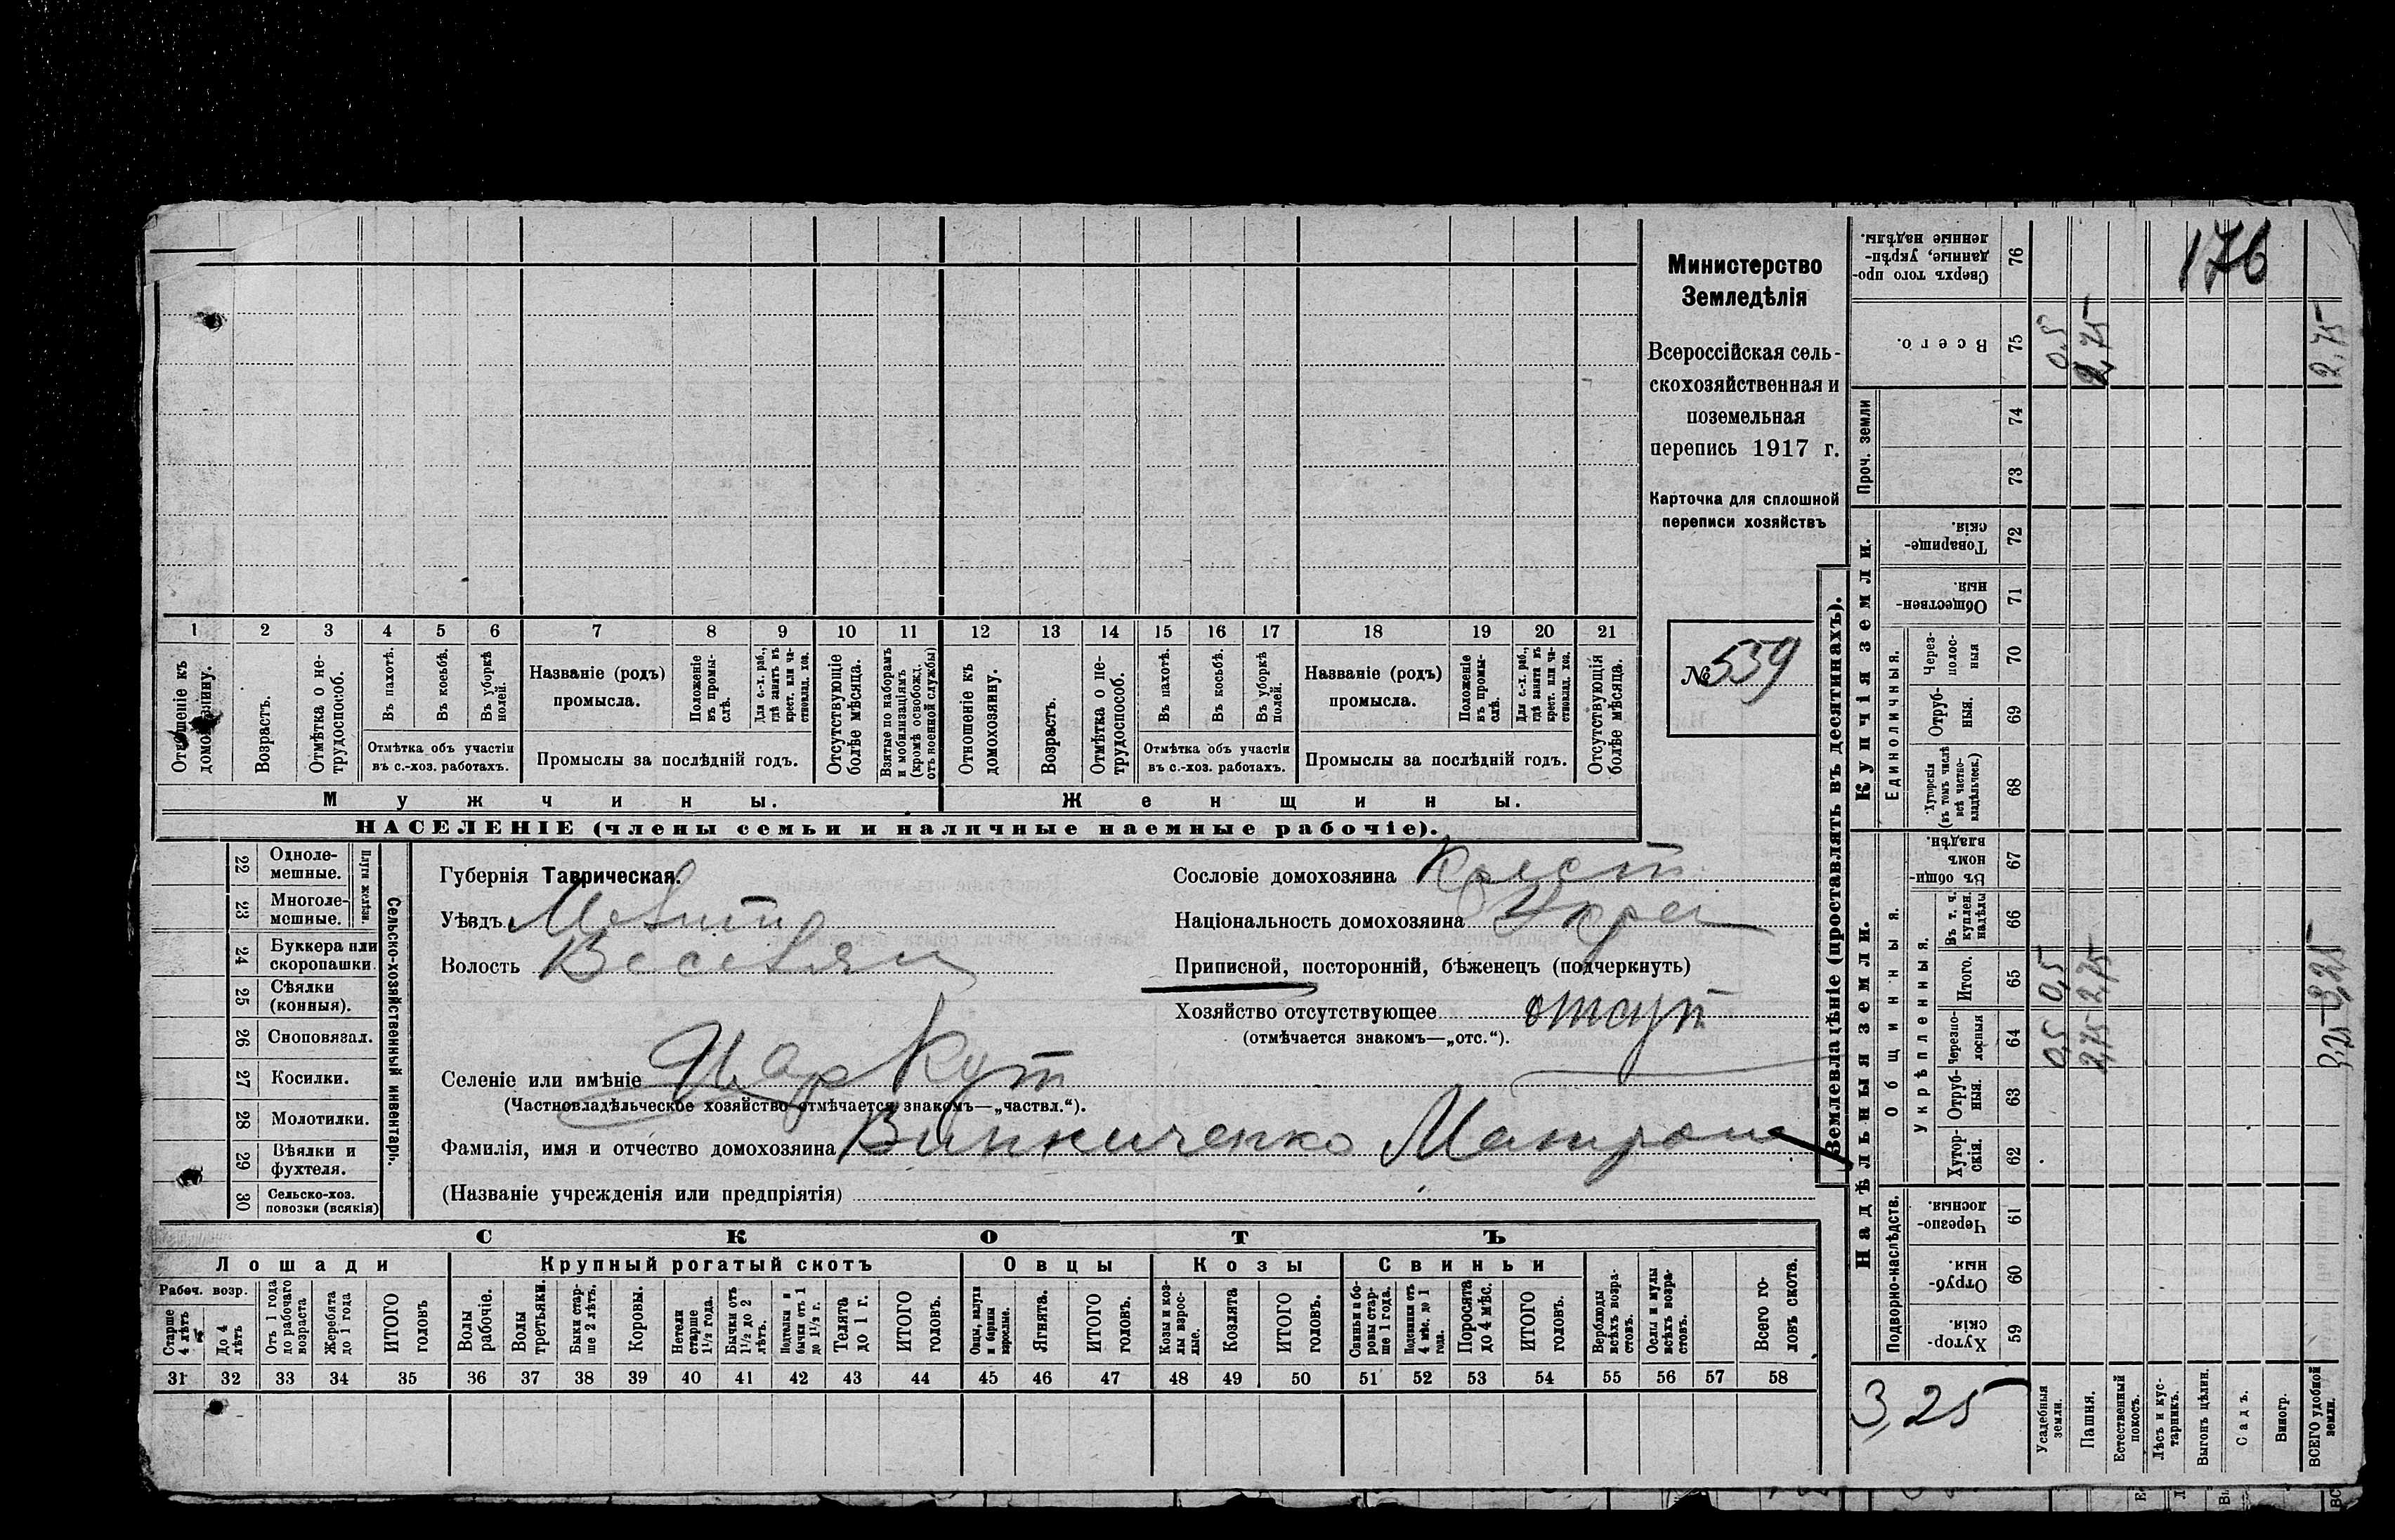 Министерство
Земледѣлія
Всероссійская сель-
скохозяйственная и
поземельная
перепись 1917 г.
Карточка для сплошной
переписи хозяйствъ
№ 539
1 2 3 4 5 6 7 8 9 10 11 12 13 14 15 16 17 18 19 20 21
Отношеніе къ домохозяину.
Возрастъ.
Отмѣтка о не-трудоспособ.
Въ пахотѣ.
Въ косьбѣ.
Въ уборкѣ полей.
Отмѣтка объ участіи
въ с.-хоз. работахъ.
Названіе (родъ)
промысла.
Положеніе въ промы-слѣ.
Для с.-х. раб., гдѣ занятъ въ крест. или ча-стновлад. хоз.
Промыслы за послѣдній годъ.
Отсутствующіе болѣе мѣсяца.
Взятые по наборамъ и мобилизаціямъ (кромѣ освобожд. отъ военной службы)
Отношеніе къ домохозяину.
Возрастъ.
Отмѣтка о не-трудоспособ.
Въ пахотѣ.
Въ косьбѣ.
Въ уборкѣ полей.
Отмѣтка объ участіи
въ с.-хоз. работахъ.
Названіе (родъ)
промысла.
Положеніе въ промы-слѣ.
Для с.-х. раб., гдѣ заняты въ крест. или ча-стновлад. хоз.
Промыслы за послѣдній годъ.
Отсутствующія болѣе мѣсяца.
Мужчины.
Женщины.
НАСЕЛЕНІЕ (члены семьи и наличные наемные рабочіе).
22 Одноле-мешные.
23 Многоле-мешные.
Плуги желѣзн.
24 Буккера или скоропашки.
25 Сѣялки (конныя).
26 Сноповязал.
27 Косилки.
28 Молотилки.
29 Вѣялки и фухтеля.
30 Сельско-хоз. повозки (всякія)
Сельско-хозяйственный инвентарь.
Губернія Таврическая.
Уѣздъ Мелито
Волость Веселян
Селеніе или имѣніе Цар Кут
(Частновладѣльческое хозяйство отмѣчается знакомъ—„частвл.“).
Фамилія, имя и отчество домохозяина Винниченко Матрона
(Названіе учрежденія или предпріятія)
Сословіе домохозяина Крест
Національность домохозяина Укра
Приписной, посторонній, бѣженецъ (подчеркнуть)
Хозяйство отсутствующее отсут
(отмѣчается знакомъ—„отс.“).
СКОТЪ
Лошади
Крупный рогатый скотъ
Овцы
Козы
Свиньи
Рабоч. возр.
Старше 4 лѣтъ
До 4 лѣтъ
Отъ 1 года до рабочаго возраста
Жеребята до 1 года
ИТОГО головъ
Волы рабочіе.
Волы третьяки.
Быки стар-ше 2 лѣтъ.
Коровы.
Нетели старше 1½ года.
Бычки отъ 1½ до 2 лѣтъ.
Подтелки и бычки отъ 1 до 1½ г.
Телята до 1 г.
ИТОГО головъ.
Овцы, валухи и бараны взрослые.
Ягнята.
ИТОГО головъ.
Козы и коз-лы взрос-лые.
Козлята
ИТОГО головъ.
Свиньи и бо-ровы стар-ше 1 года.
Подсвинки отъ 4 мѣс. до 1 года.
Поросята до 4 мѣс.
ИТОГО головъ.
Верблюды всѣхъ возра-стовъ.
Ослы и мулы всѣхъ возра-стовъ.
Всего го-ловъ скота.
31 32 33 34 35 36 37 38 39 40 41 42 43 44 45 46 47 48 49 50 51 52 53 54 55 56 57 58
Землевладѣніе (проставлять въ десятинахъ).
Надѣльныя земли.
Купчія земли.
Проч. земли
Подворно-наслѣдств.
Общинныя.
Укрѣпленныя.
Единоличныя.
Хутор-скія. 59
Отруб-ныя. 60
Черезпо-лосныя. 61
Хутор-скія. 62
Отруб-ныя. 63
Черезпо-лосныя 64
Итого. 65
Въ т. ч. куплен. надѣлы 66
Въ общи-номъ владѣн. 67
Хуторскія (въ томъ числѣ всѣ частно-владѣльческ.) 68
Отруб-ныя. 69
Через-полос-ныя 70
Обществен-ныя. 71
Товарище-скія. 72
73
74
Всего. 75
Сверхъ того про-данные, укрѣп-ленные надѣлы. 76
176
3,25
Усадебныя земли. 0,5 0,5 0,5
Пашня. 2,75 2,75 2,75
Естественный покосъ.
Лѣсъ и кус-тарникъ.
Выгонъ цѣлин.
Садъ.
Виногр.
ВСЕГО удобной земли. 3,25 3,25 2,75